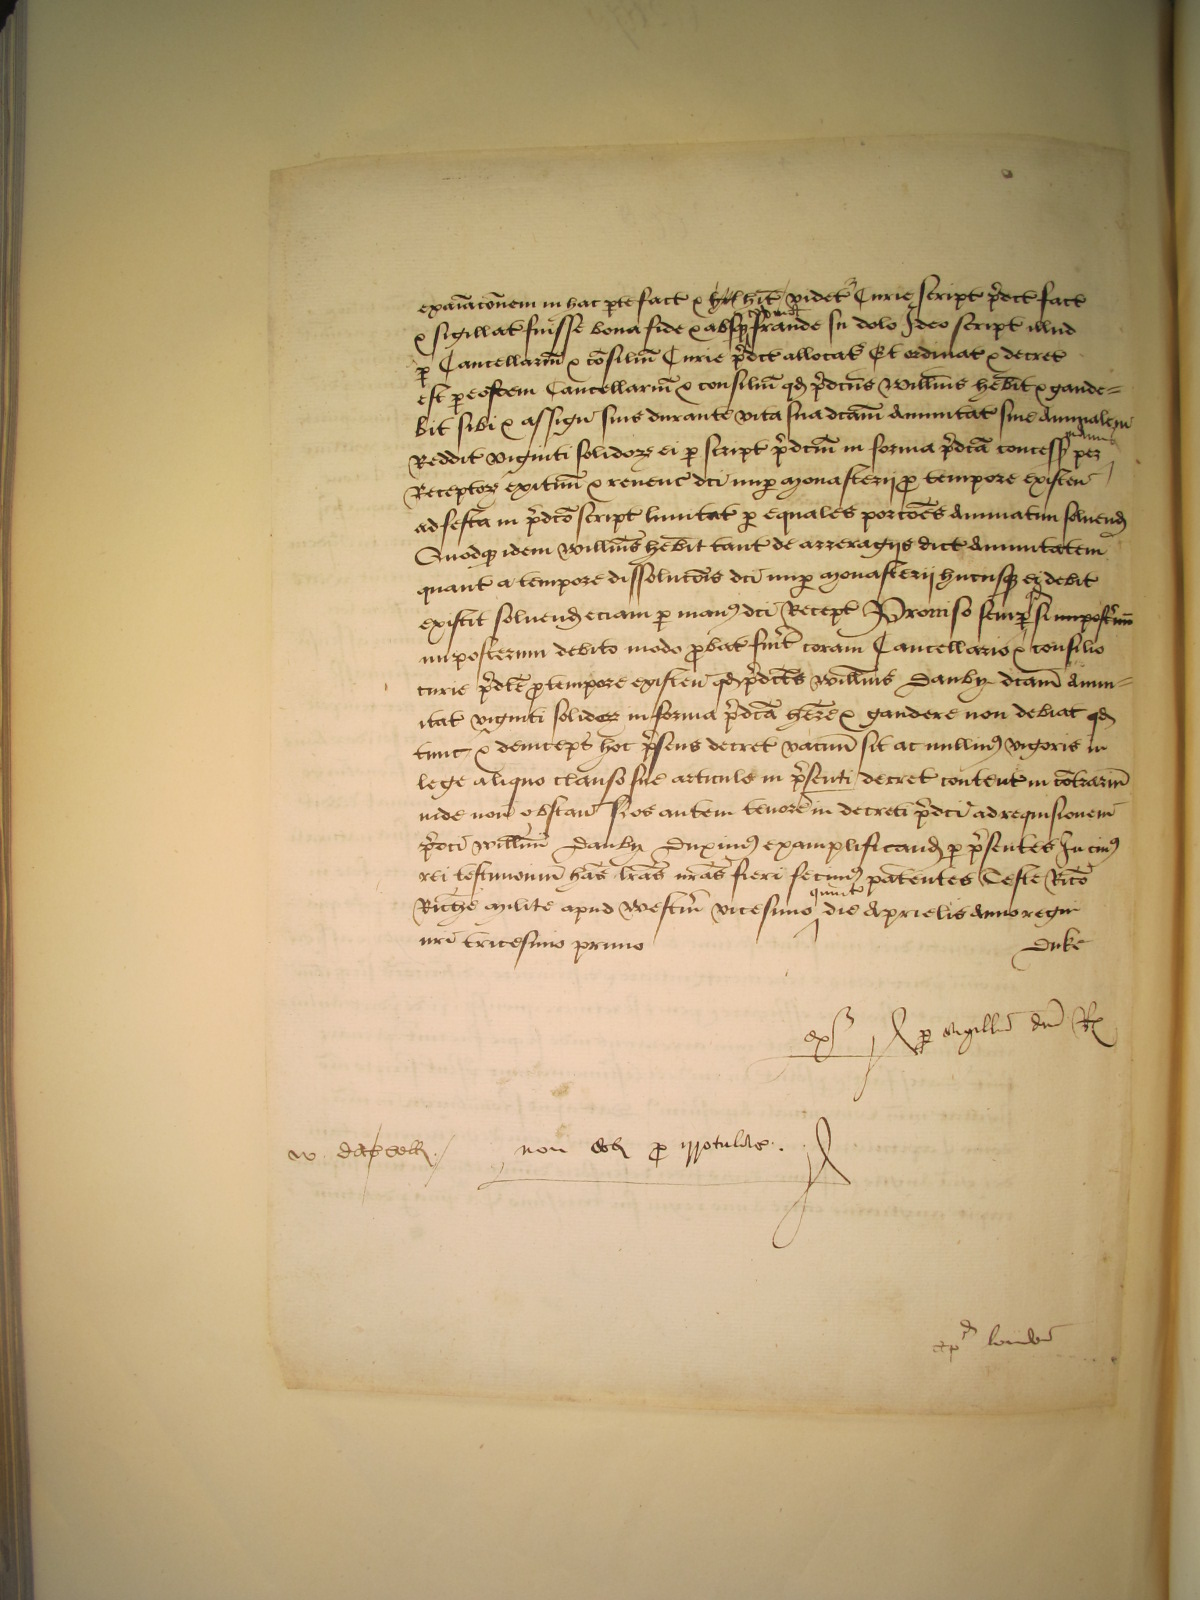 exaîacõnem in hac pte fact & hit videt Curie script p̃dict fact
& sigillat fuisse bona fide & absq̨ fraude su dolo Ideo script illud
p Cancellariũ & cõsiliũ Curie p̃dct allocat Et ordinat & decret
est p eosdem Cancellariũ & consiliũ qd p̃dcũs Willm̃s hẽbit & gaude=
bit sibi & assigñ suis durante vita sua dcãm Annuitat sive Annualem
Reddit viginti solidor ei p script p̃dcm̃ in forma p̃dcã concess per manus
Receptor exituũ & revenc̃ dci nup Monasterij p tempore existeñ
ad festa in p̃dcõ script limitat p equales porcõẽs Annuatim solvend
Quodq̨ idem Willm̃s hẽbit tant de arreragijs dict Annuitatem
quant a tempore dissolucõis dci nup Monasterij hucusq̨ ei debit
existit solvend eciam p man9 dci Recept Proviso semp qd si imposterũ
imposterum debito modo p̃bat fuĩt coram Cancellario & consilio
curie p̃dcẽ p tempore existeñ qd p̃dcũs Willm̃s Danby dcãm Annu=
itat viginti solidor in forma p̃dcã hẽre & gaudere non debeat qd
tunc & deinceps hoc p̃sens decret vacuũ sit ac nulliu9 vigoris in
lege aliquo clauso sive articulo in p̃senti decret content in cõtrariũ
inde noñ obstañ Nos autem tenorem decreti p̃dci ad requisicionem
p̃dci Willm̃i Danby Duximu9 exemplificand p p̃sentes In cuiu9
rei testimoniũ hãs lrãs nrãs fieri fecimu9 patentes Teste Ricõ
Riche Milite apud Westm̃ vicesimo quinto die Aprielis Anno regni
nri tricesimo primo Duke
exr p sigillũ dnĩ R
non p
apd london